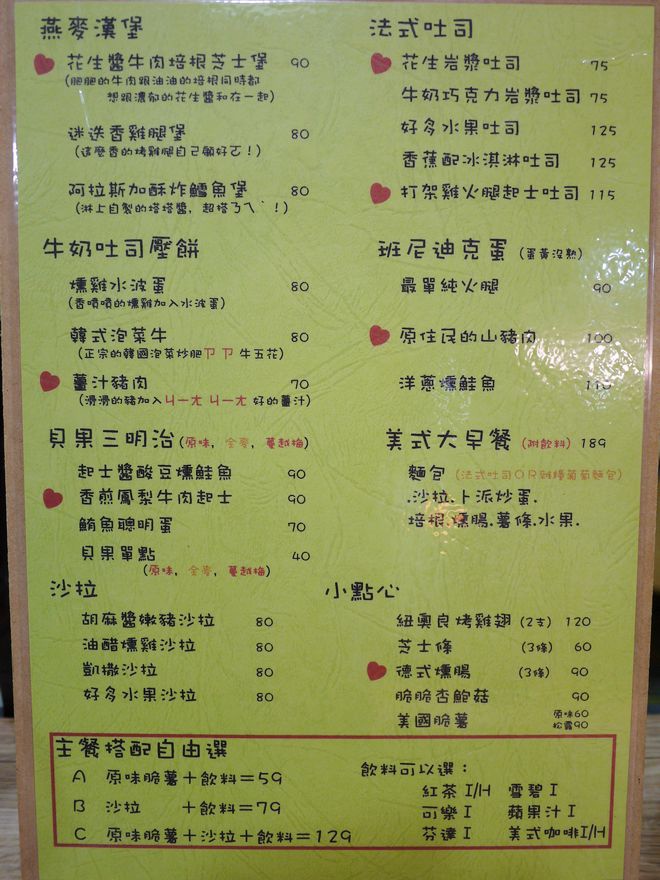 燕麥漢堡
花生醬牛肉培根芝士堡 90
(肥肥的牛肉跟油油的培根同時都
想跟濃郁的花生醬和在一起)
迷迭香雞腿堡 80
(這麼香的烤雞腿自己顧好ㄛ!)
阿拉斯加酥炸鱈魚堡 80
(淋上自製的塔塔醬, 超搭ㄋㄟˋ!)
牛奶吐司壓餅
燻雞水波蛋 80
(香噴噴的燻雞加入水波蛋)
韓式泡菜牛 80
(正宗的韓國泡菜炒肥ㄗㄗ牛五花)
薑汁豬肉 70
(滑滑的豬加入ㄐㄧㄤ ㄐㄧㄤ 好的薑汁)
貝果三明治(原味, 全麥, 蔓越梅)
起士醬酸豆燻鮭魚 90
香煎鳳梨牛肉起士 90
鮪魚聰明蛋 70
貝果單點 40
(原味, 全麥, 蔓越梅)
沙拉
胡麻醬嫩豬沙拉 80
油醋燻雞沙拉 80
凱撒沙拉 80
好多水果沙拉 80
法式吐司
花生岩漿吐司 75
牛奶巧克力岩漿吐司 75
好多水果吐司 125
香蕉配冰淇淋吐司 125
打架雞火腿起士吐司 115
班尼迪克蛋(蛋黃沒熟)
最單純火腿 90
原住民的山豬肉 100
洋蔥燻鮭魚 110
美式大早餐(附飲料) 189
麵包(法式吐司OR雜糧葡萄麵包)
.沙拉.卜派炒蛋.
培根.燻腸.薯條.水果.
小點心
紐奧良烤雞翅 (2支) 120
芝士條 (3條) 60
德式燻腸 (3條) 90
脆脆杏鮑菇 90
美國脆薯 原味60
松露90
主餐搭配自由選
A 原味脆薯+飲料=59
B 沙拉 +飲料=79
C 原味脆薯+沙拉+飲料=129
飲料可以選:
紅茶 I/H 雪碧 I
可樂 I 蘋果汁 I
芬達 I 美式咖啡I/H